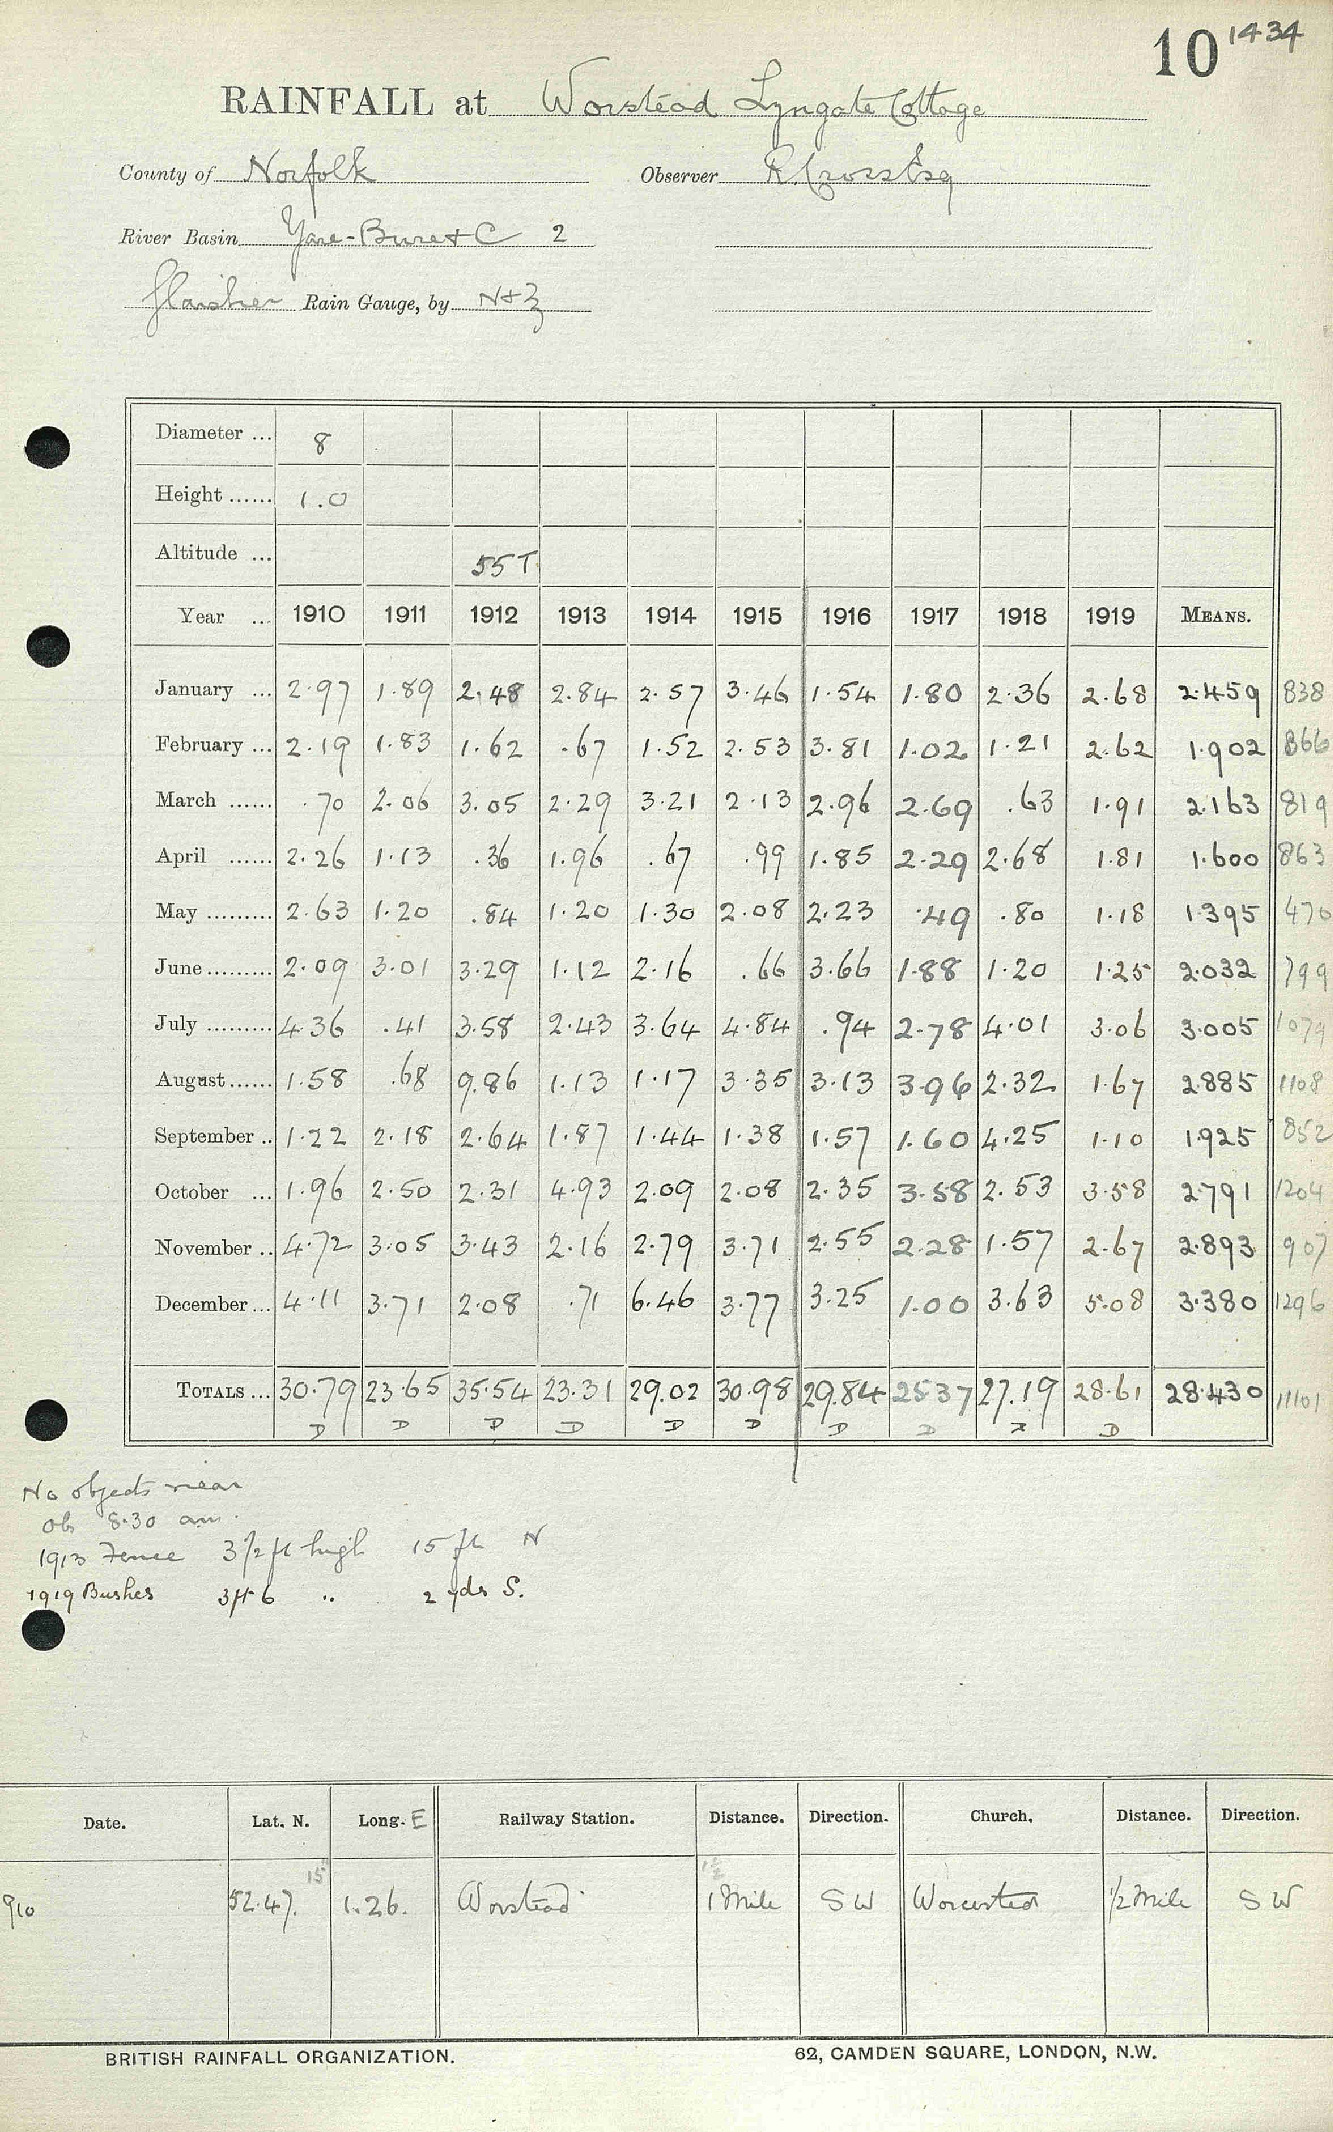 10 1434
RAINFALL at Worstead Lyngate Cottage
County of Norfolk Observer R. Cross Esq
River Basin Yare-Bure + C 2
Glaisher Rain Gauge, by N+Z
Diameter ... 8
Height ...... 1.0
Altitude ... 55T
Year ... 1910 1911 1912 1913 1914 1915 1916 1917 1918 1919 MEANS.
January ... 2.97 1.89 2.48 2.84 2.57 3.46 1.54 1.80 2.36 2.68 2.459 838
February ... 2.19 1.83 1.62 .67 1.52 2.53 3.81 1.02 1.21 2.62 1.902 866
March ...... .70 2.06 3.05 2.29 3.21 2.13 2.96 2.69 .63 1.91 2.163 819
April ...... 2.26 1.13 .36 1.96 .67 .99 1.85 2.29 2.68 1.81 1.600 863
May ......... 2.63 1.20 .84 1.20 1.30 2.08 2.23 .49 .80 1.18 1.395 470
June ......... 2.09 3.01 3.29 1.12 2.16 .66 3.66 1.88 1.20 1.25 2.032 799
July ......... 4.36 .41 3.58 2.43 3.64 4.84 .94 2.78 4.01 3.06 3.005 1079
August ...... 1.58 .68 9.86 1.13 1.17 3.35 3.13 3.96 2.32 1.67 2.885 1108
September .. 1.22 2.18 2.64 1.87 1.44 1.38 1.57 1.60 4.25 1.10 1.925 852
October ... 1.96 2.50 2.31 4.93 2.09 2.08 2.35 3.58 2.53 3.58 2.791 1204
November .. 4.72 3.05 3.43 2.16 2.79 3.71 2.55 2.28 1.57 2.67 2.893 907
December ... 4.11 3.71 2.08 .71 6.46 3.77 3.25 1.00 3.63 5.08 3.380 1296
TOTALS ... 30.79 23.65 35.54 23.31 29.02 30.98 29.84 25.37 27.19 28.61 28.430 11101
D D D D D D D D D
No objects near
Ob 8.30 am.
1913 Fence 3 1/2 ft high 15 ft N
1919 Bushes 3ft 6 .. 2 yds S.
Date. Lat. N. Long. E Railway Station. Distance. Direction. Church. Distance. Direction.
15" 1 1/2
910 52.47. 1.26. Worstead 1 Mile SW Worcested 1/2 Mile SW
BRITISH RAINFALL ORGANIZATION. 62, CAMDEN SQUARE, LONDON, N.W.